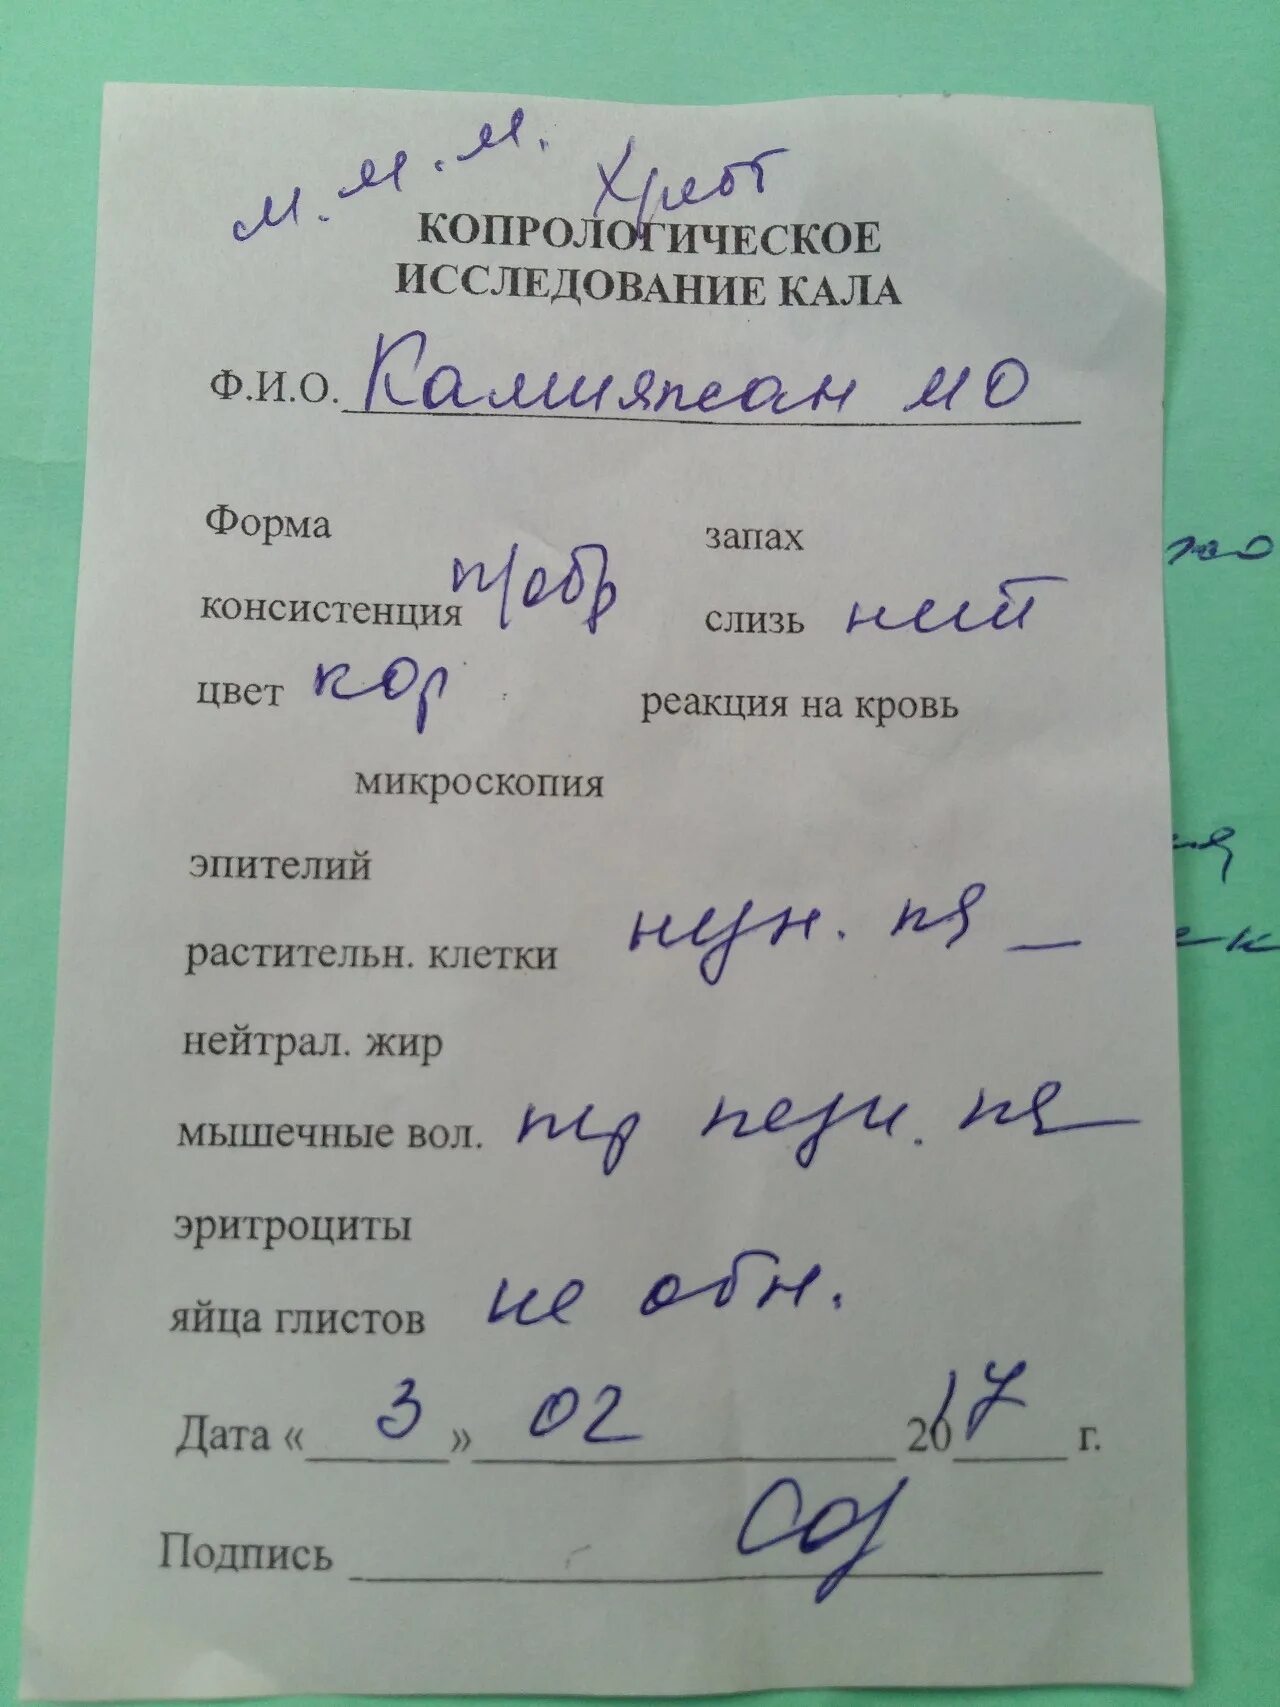 м. м. м. Хреб
КОПРОЛОГИЧЕСКОЕ
ИССЛЕДОВАНИЕ КАЛА
Ф.И.О. МО
Форма запах
консистенция п/обр слизь нет
цвет кор реакция на кровь
микроскопия
эпителий
растительн. клетки
нейтрал. жир
мышечные вол.
эритроциты
яйца глистов не обн.
Дата « 3 » 02 2017 г.
Подпись